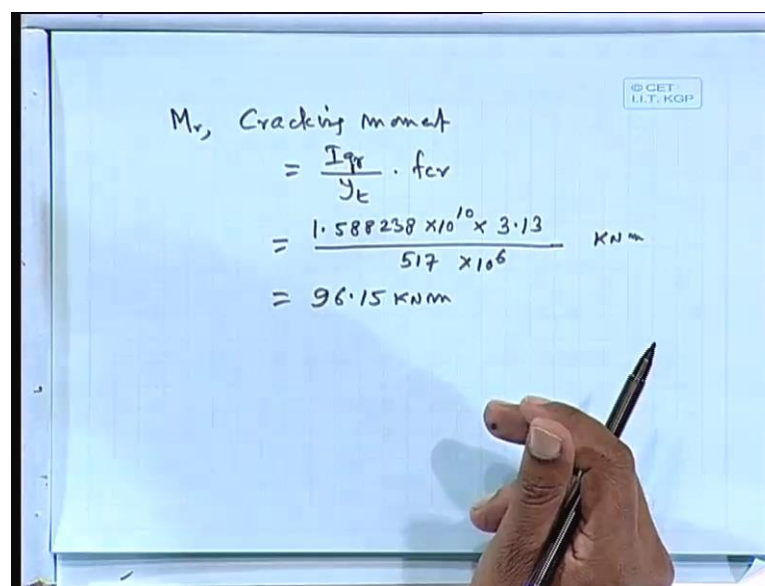 © CET
I.I.T. KGP
Mr, Cracking moment
= Igr / yt . fcr
= 1.588238 ×10^10 × 3.13 / 517 ×10^6 KNm
= 96.15 KNm